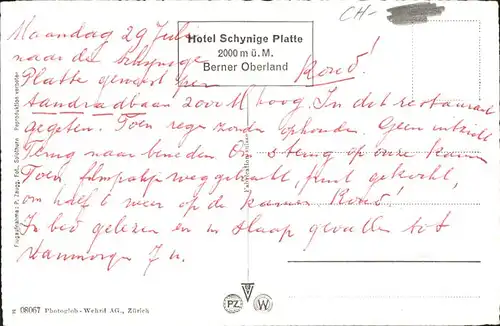 CH-
Hotel Schynige Platte
2000 m ü. M.
Berner Oberland
Maandag 29 Juli
naar de Schynige
Platte geweest per Koud!
tandradbaan 2000 M hoog. In dit restaurant
gegeten. Toen regen zonder ophouden. Geen uitzicht
Terug naar beneden. Om op onze kamer
Toen weggebracht, fruit gekocht,
om half 6 weer op de kamer. Koud!
In bed gelezen en in slaap gevallen tot
vanmorgen 7 u.
Flugaufnahme: P. Zaugg, Fot., Solothurn Reproduktion verboten
PZ W
g 08067 Photoglob-Wehrli AG., Zürich